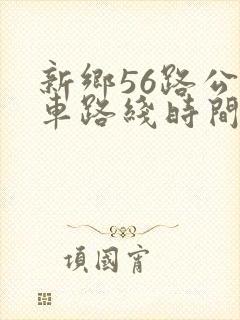 新鄉56路公
車路綫時間
項國宵